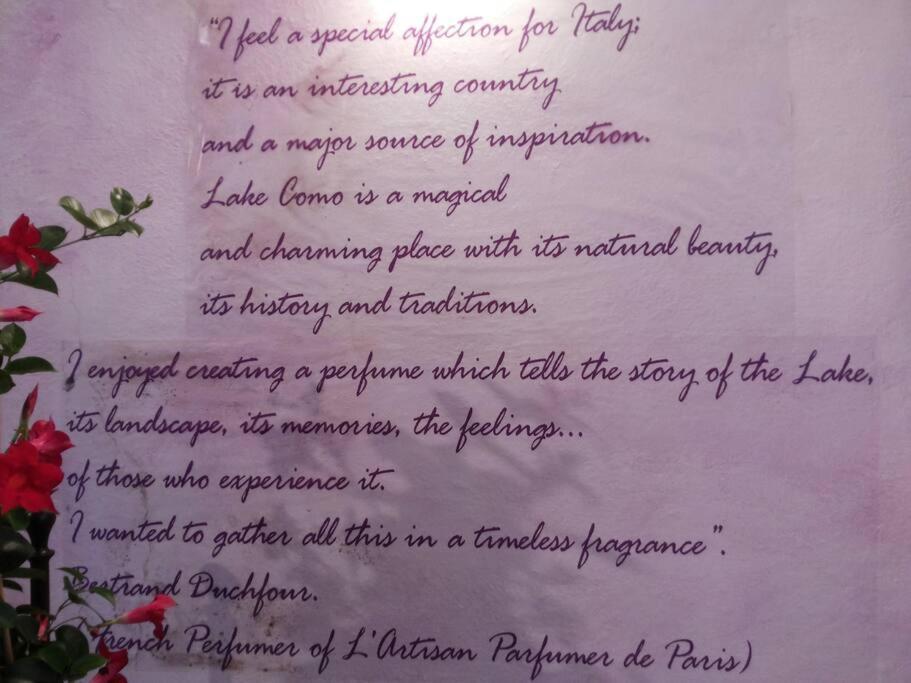 “I feel a special affection for Italy;
it is an interesting country
and a major source of inspiration.
Lake Como is a magical
and charming place with its natural beauty,
its history and traditions.
I enjoyed creating a perfume which tells the story of the Lake,
its landscape, its memories, the feelings...
of those who experience it.
I wanted to gather all this in a timeless fragrance”.
Bertrand Duchfour.
(French Perfumer of L'Artisan Parfumer de Paris)